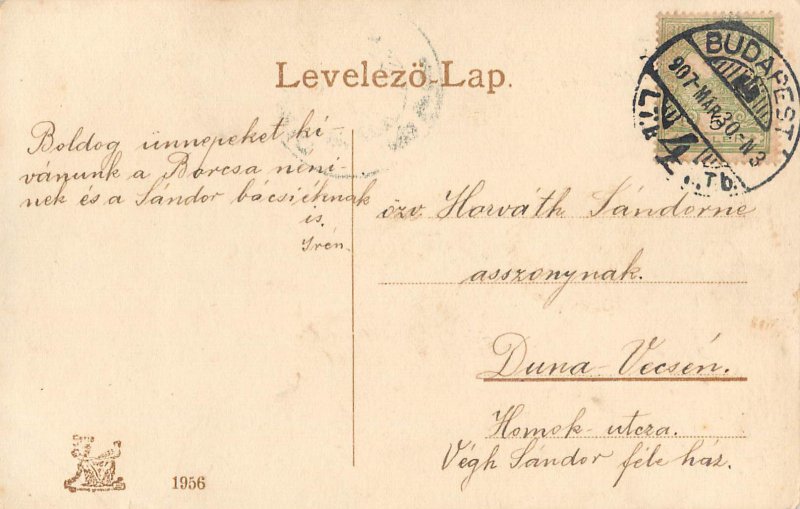 Levelező-Lap.
BUDAPEST
907 MÁR 30 N3
4
Boldog ünnepeket kí
vánunk a Borcsa néni
nek és a Sándor bácsiéknak
is.
Irén.
özv Horváth Sándorne
asszonynak.
Duna-Vecsén.
Homok-utcza.
Végh Sándor féle ház.
1956